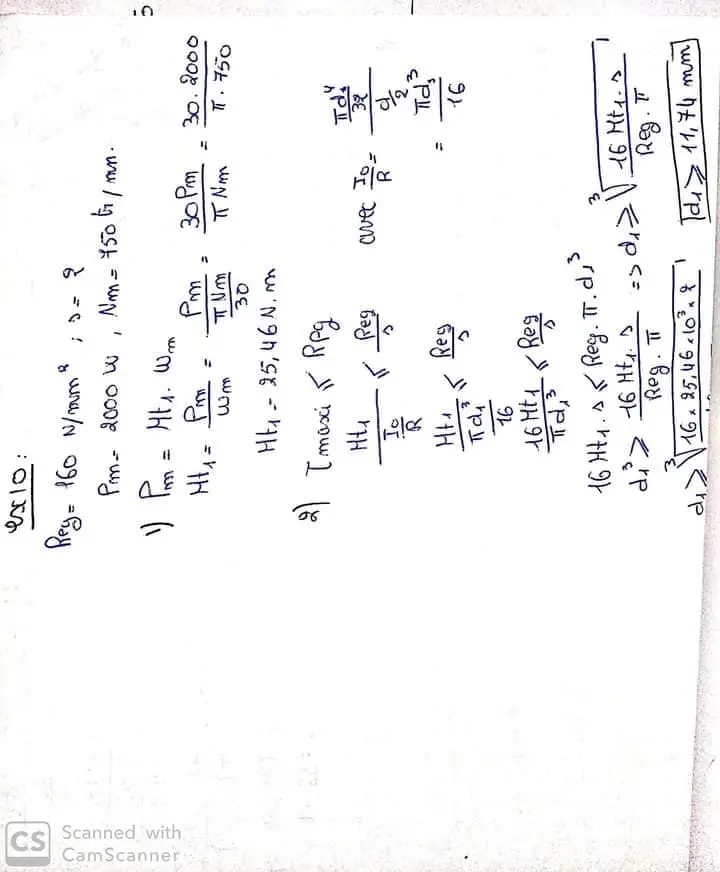 ex 10:
Reg = 160 N/mm² ; s = 2
Pm = 2000 W , Nm = 750 tr/mn.
1) Pm = Mt1 . Wm
Mt1 = Pm/Wm = Pm/(π Nm/30) = 30 Pm/π Nm = 30 . 2000/π . 750
Mt1 = 25,46 N.m
2) τmaxi ⩽ Rpg
Mt1/(I0/R) ⩽ Reg/s avec I0/R = (πd1⁴/32)/(d/2)
Mt1/(πd1³/16) ⩽ Reg/s = πd1³/16
16 Mt1/πd1³ ⩽ Reg/s
16 Mt1 . s ⩽ Reg . π . d1³
d1³ ⩾ 16 Mt1 . s/Reg . π => d1 ⩾ ³√(16 Mt1 . s/Reg . π)
d1 ⩾ ³√(16 x 25,46 x 10³ x 2 d1 ⩾ 11,74 mm
CS Scanned with
CamScanner